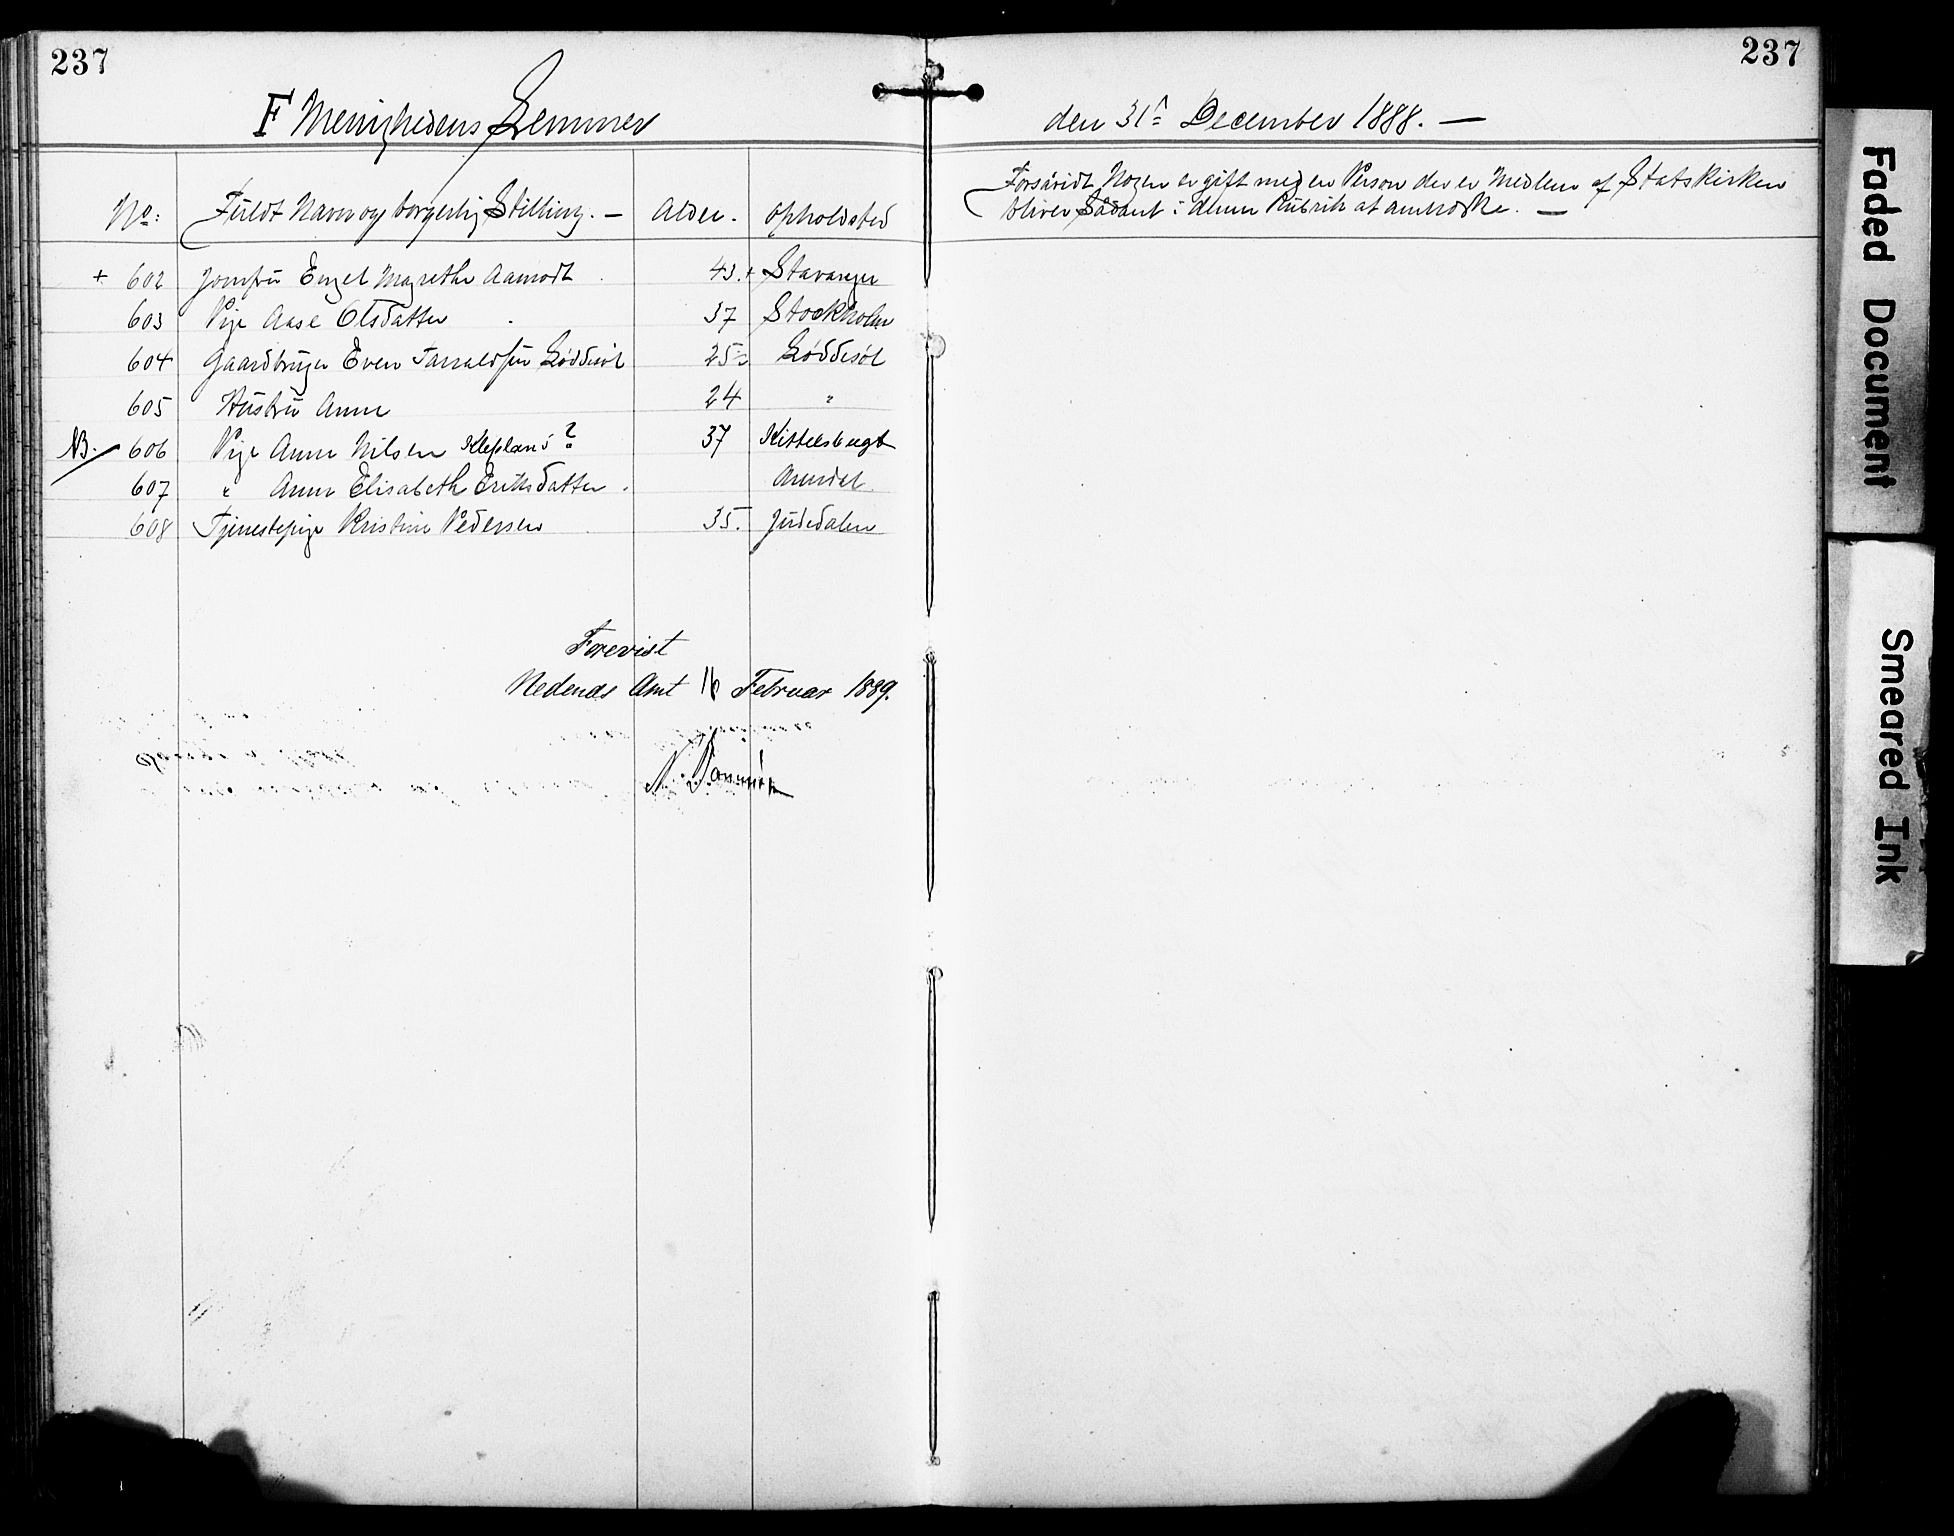 237
237
F Menighedens Lemmer
den 31te December 1888. —
No: Fuldt Navn og borgerlig Stilling. — Alder. Opholdsted
Forsåvidt Nogen er gift med en Person der er Medlem af Statskirken
bliver Sådant i denne Rubrik at anmærke. —
+ 602 Jomfru Engel Magrethe Aamodt 43. + Stavanger
603 Pige Aase Olsdatter 37 Stockholm
604 Gaardbruger Even Tarraldsen Løddesøl 25 Løddesøl
605 Hustru Anne 24 "
NB. 606 Pige Anne Nilsen Kleplans? 37 Kittelsbugt
607 " Anne Elisabeth Eriksdatter. Arendal
608 Tjenestepige Kristine Pedersen 35. Judedalen
Forevist
Nedenæs Amt 16 Februar 1889.
Faded Document
Smeared Ink